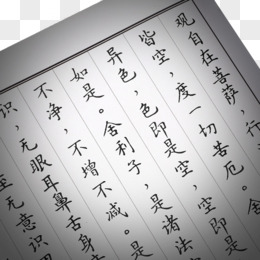 观自在菩萨,行
皆空,度一切苦厄。舍
异色,色即是空,空即是
如是。舍利子,是诸法
不净,不增不减。是
识,无眼耳鼻舌身
至无意识